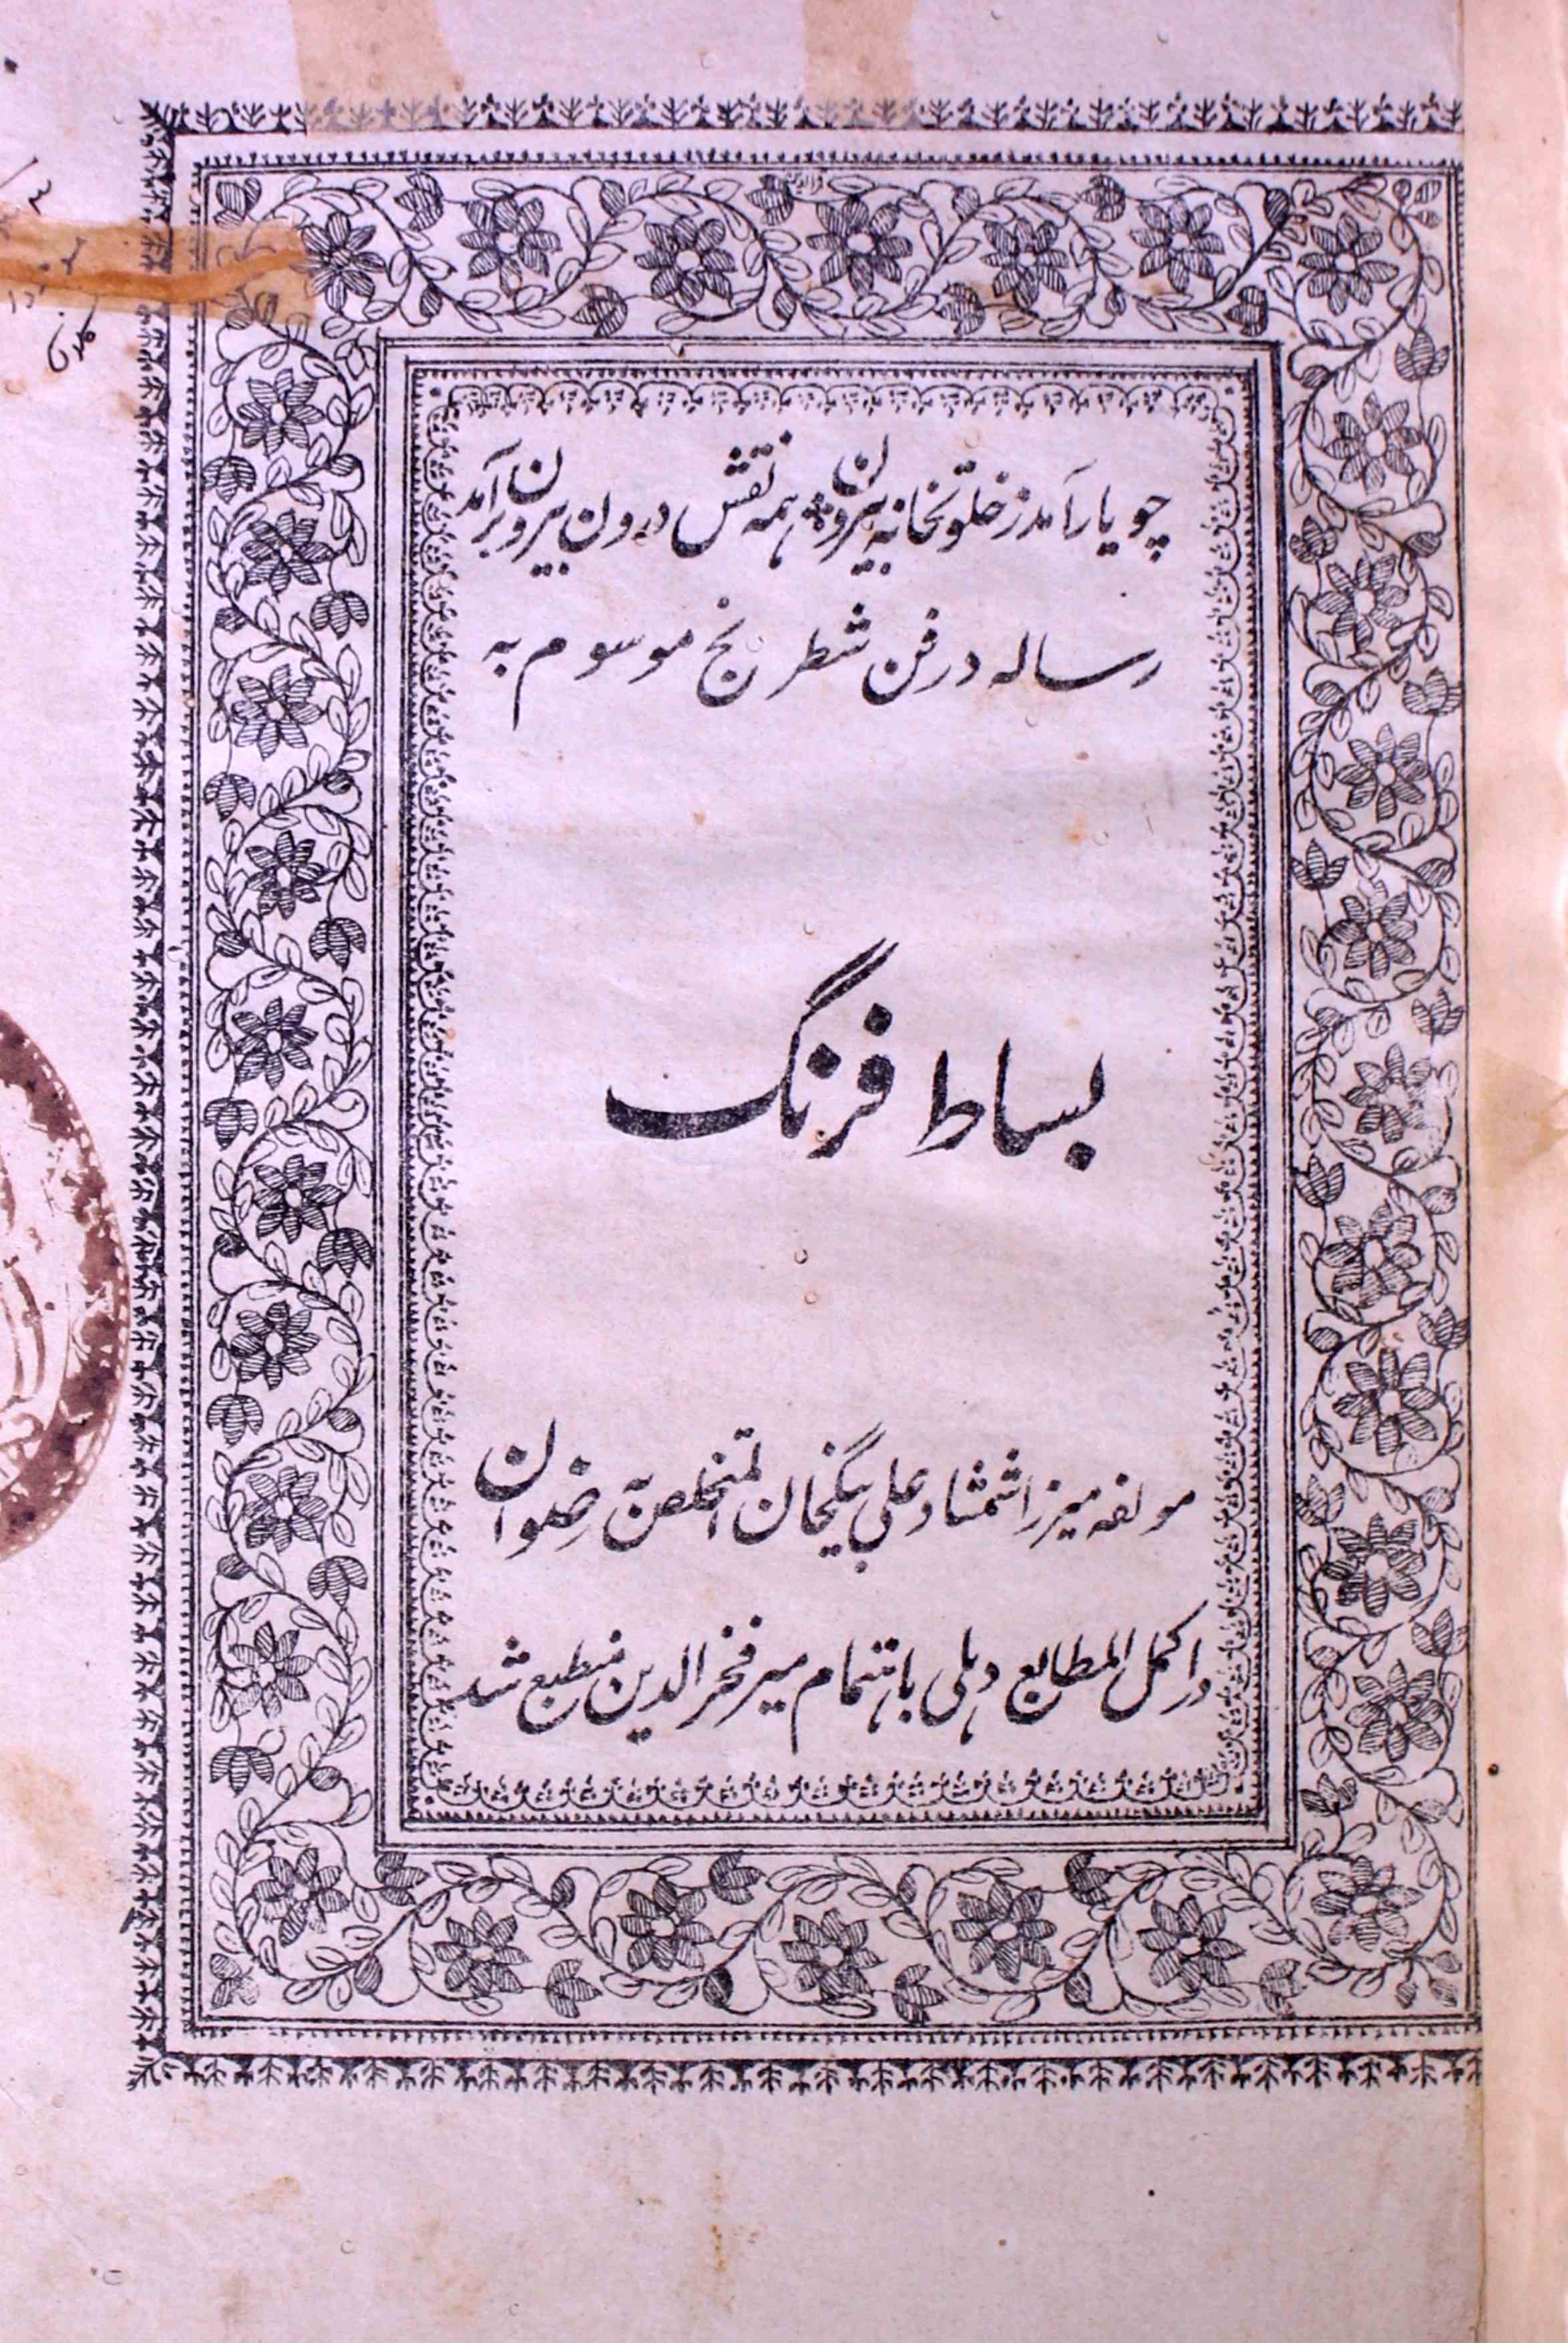 چو یار آمد ز خلوتخانه بیرون همه نقش درون بیرون برآمد
رساله در فن شطرنج موسوم به
بساط فرنگ
مولفه میرزا شمشاد علی بیگخان المتخلص به رضوان
در اکمل المطابع دہلی باہتمام میر فخرالدین منطبع شد